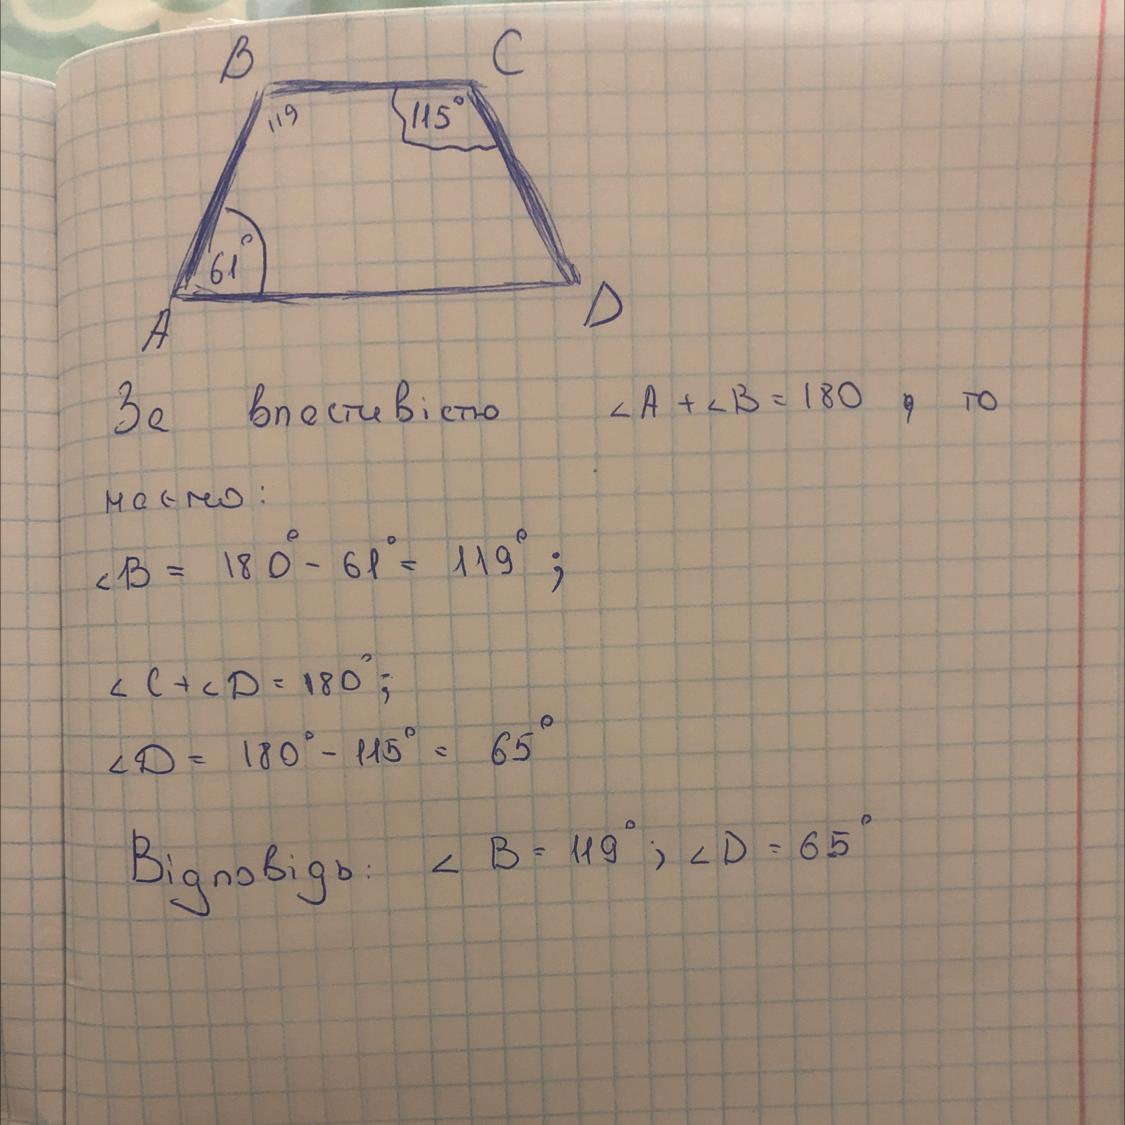 B C
119 115°
61°
A D
За властивістю ∠A + ∠B = 180, то
маємо:
∠B = 180° - 61° = 119°;
∠C + ∠D = 180°;
∠D = 180° - 115° = 65°
Відповідь: ∠B = 119°; ∠D = 65°